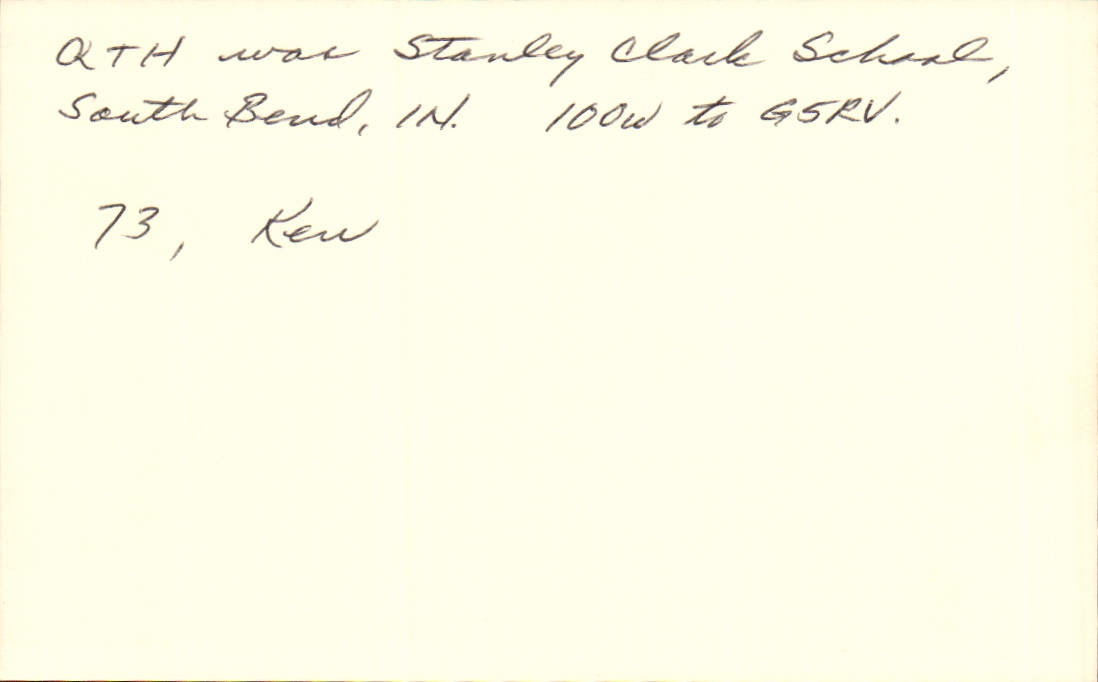 QTH was Stanley Clark School,
South Bend, IN. 100W to G5RV.
73, Ken